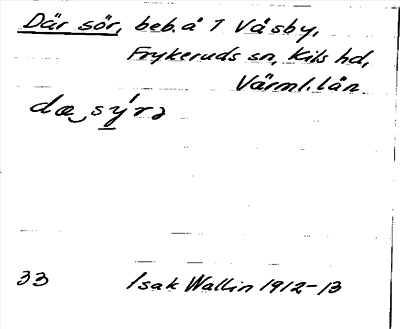 Där sör, beb. å 1 Våsby,
Frykeruds sn, Kils hd,
Värml. län
dæ‿sý̲rə
33 Isak Wallin 1912-13